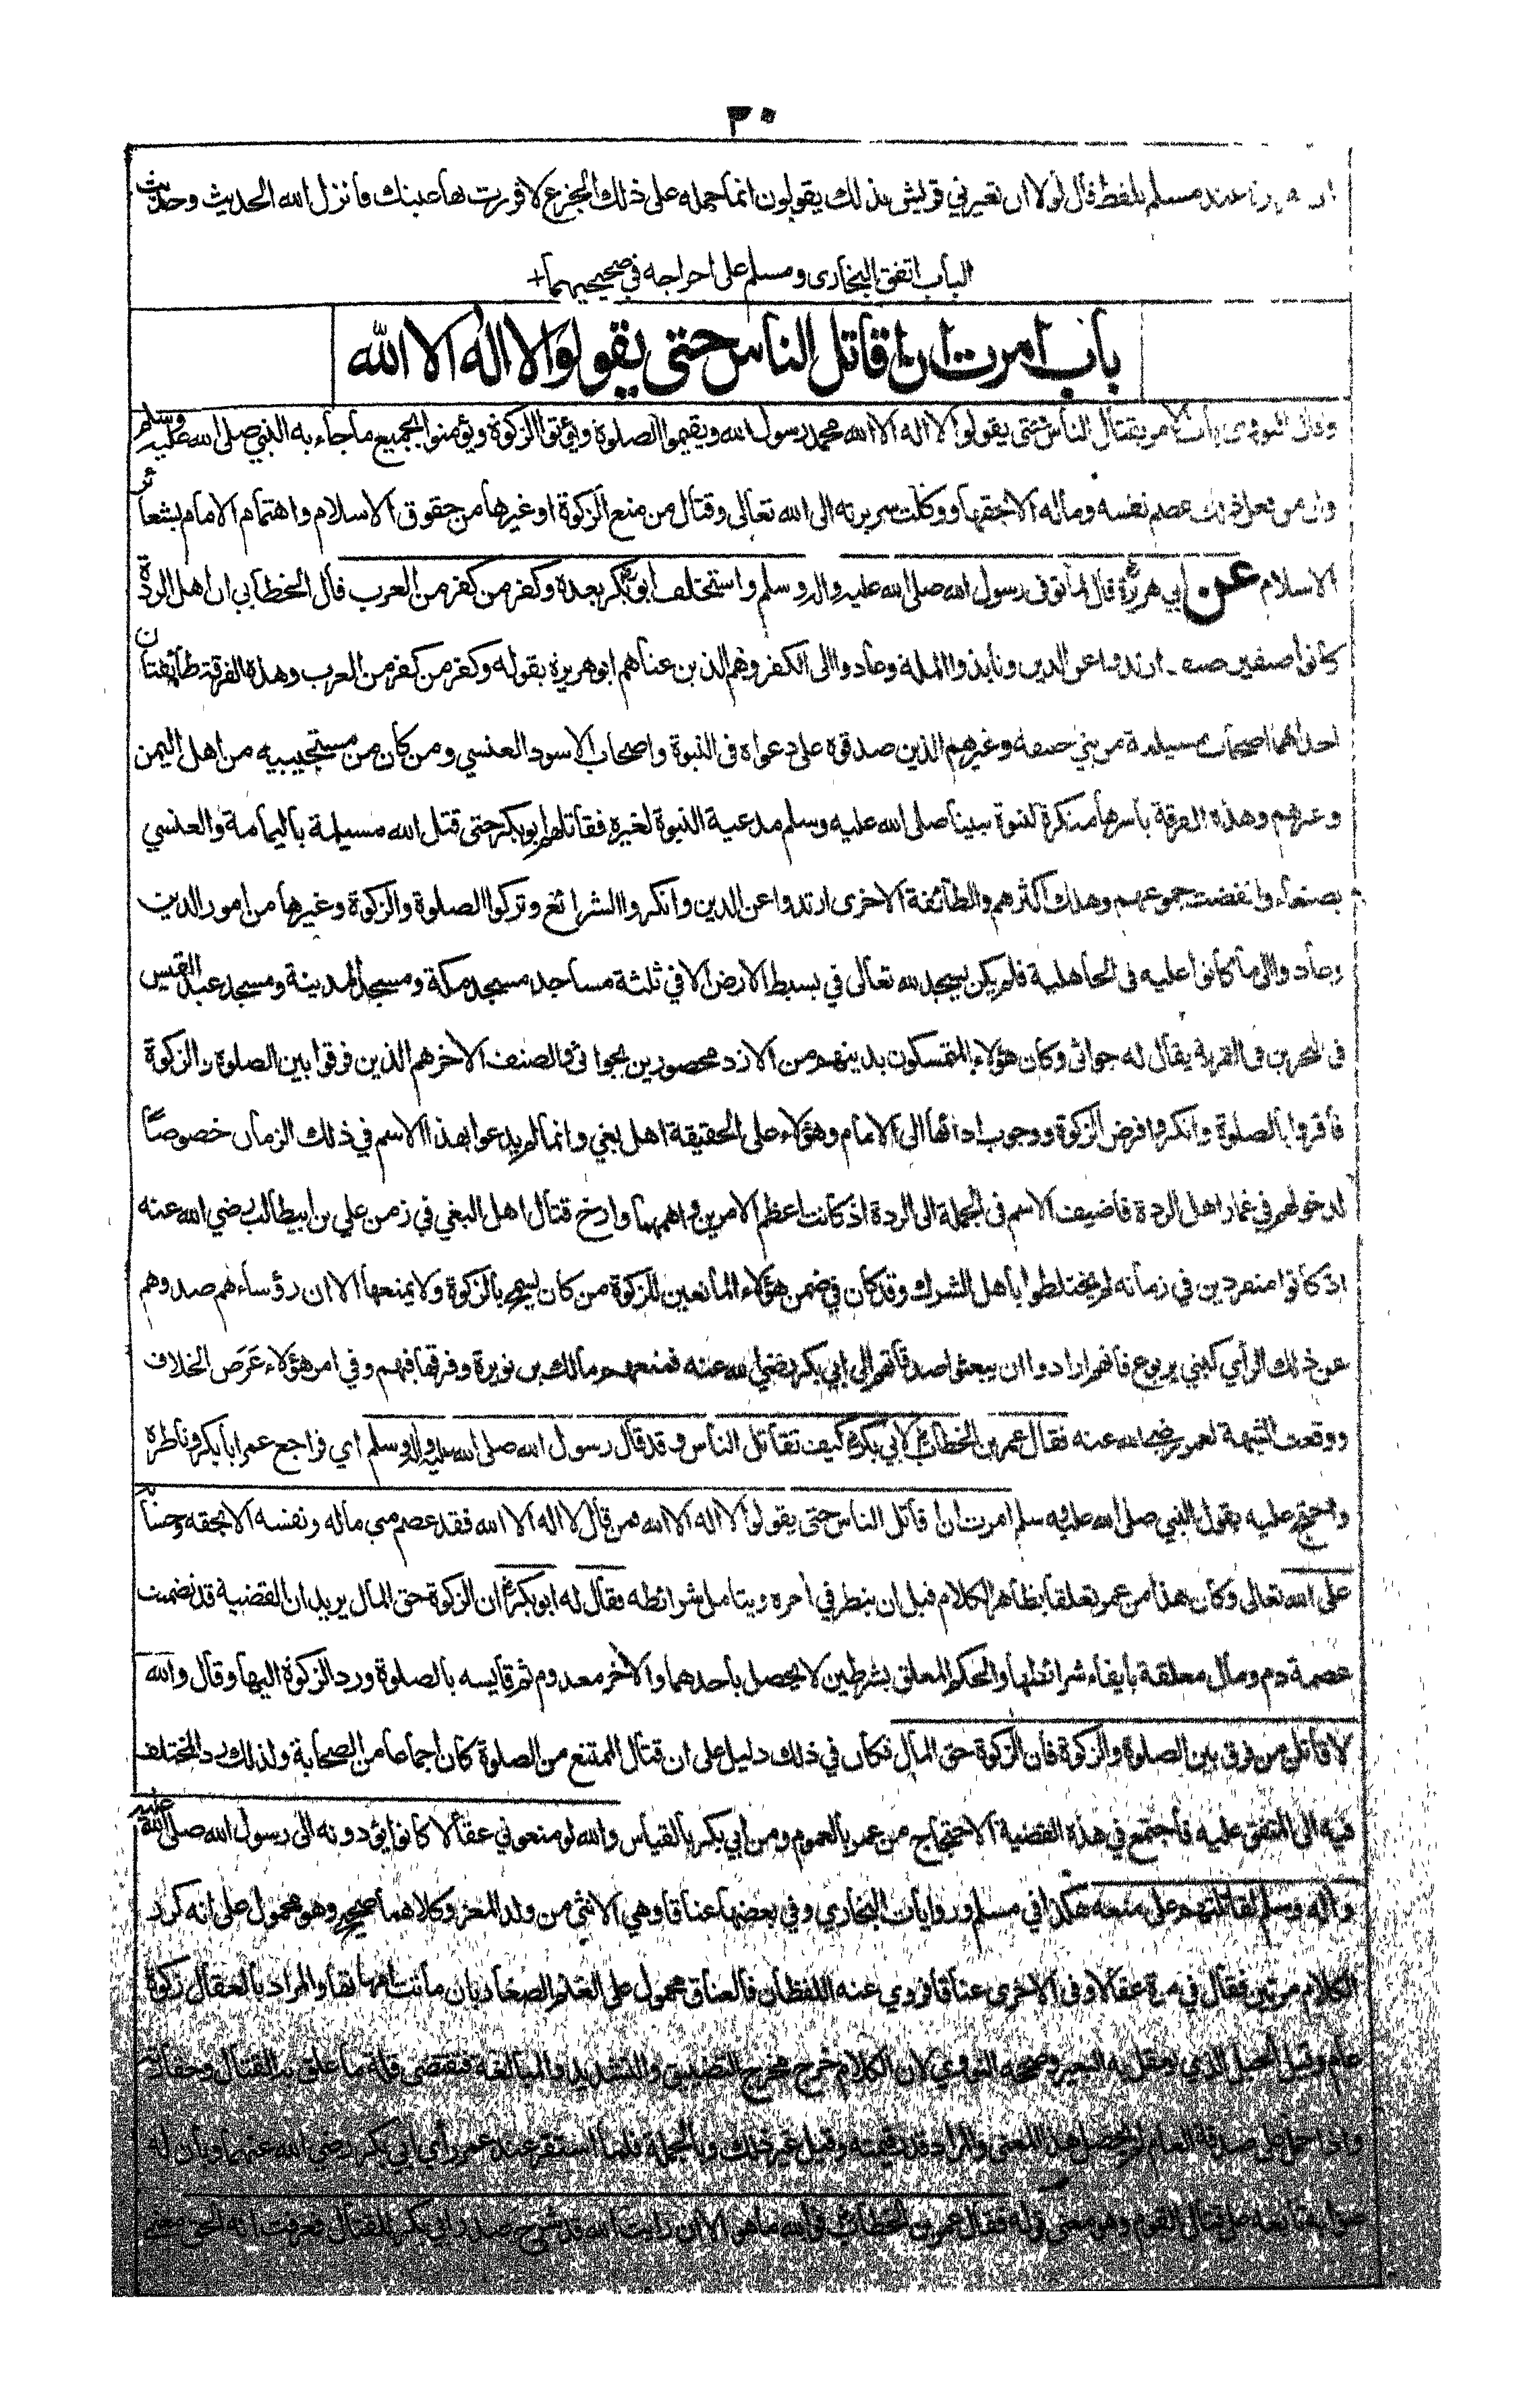 ٣٠
عند مسلم بلفظ قال لولا ان تعيرني قريش بذلك يقولون انما حمله على ذلك الجزع لاقررت بها عينك فانزل الله الحديث وحديث
الباب اتفق البخارى ومسلم على اخراجه في صحيحيهما+
باب امرت ان اقاتل الناس حتى يقولوا لا اله الا الله
وقال النووى باب الامر بقتال الناس حتى يقولوا لا اله الا الله محمد رسول الله ويقيموا الصلوة ويؤتوا الزكوة ويؤمنوا بجميع ما جاء به النبي صلى الله عليه وسلم
وان من فعل ذلك عصم نفسه وماله الا بحقها ووكلت سريرته الى الله تعالى وقتال من منع الزكوة او غيرها من حقوق الاسلام واهتمام الامام بشعائر
الاسلام عن ابي هريرة قال لما توفى رسول الله صلى الله عليه واله وسلم واستخلف ابو بكر بعده وكفر من كفر من العرب قال الخطابي ان اهل الردة
كانوا صنفين صنف ارتدوا عن الدين ونابذوا الملة وعادوا الى الكفر وهم الذين عناهم ابو هريرة بقوله وكفر من كفر من العرب وهذه الفرقة طائفتان
احداهما اصحاب مسيلمة من بني حنيفة وغيرهم الذين صدقوه على دعواه فى النبوة واصحاب الاسود العنسي ومن كان من مستجيبيه من اهل اليمن
وغيرهم وهذه الفرقة باسرها منكرة لنبوة نبينا صلى الله عليه وسلم مدعية النبوة لغيره فقاتلهم ابو بكر حتى قتل الله مسيلمة باليمامة والعنسي
بصنعاء وانفضت جموعهم وهلك اكثرهم والطائفة الاخرى ارتدوا عن الدين وانكروا الشرائع وتركوا الصلوة والزكوة وغيرها من امور الدين
وعادوا الى ما كانوا عليه فى الجاهلية فلم يكن يسجد لله تعالى في بسيط الارض الا في ثلثة مساجد مسجد مكة ومسجد المدينة ومسجد عبد القيس
فى البحرين فى القرية يقال له جواثى وكان هؤلاء المتمسكون بدينهم من الازد محصورين بجواثى والصنف الاخر هم الذين فرقوا بين الصلوة والزكوة
فاقروا بالصلوة وانكروا فرض الزكوة ووجوب ادائها الى الامام وهؤلاء على الحقيقة اهل بغي وانما لم يدعوا بهذا الاسم في ذلك الزمان خصوصاً
لدخولهم في غمار اهل الردة فاضيف الاسم فى الجملة الى الردة اذ كانت اعظم الامرين واهمهما وارخ قتال اهل البغي في زمن علي بن ابيطالب رضي الله عنه
اذ كانوا منفردين في زمانه لم يختلطوا باهل الشرك وقد كان في ضمن هؤلاء المانعين للزكوة من كان يسمح بالزكوة ولا يمنعها الا ان رؤساءهم صدوهم
عن ذلك الرأي كبني يربوع فانهم ارادوا ان يبعثوا صدقاتهم الى ابي بكر رضي الله عنه فمنعهم مالك بن نويرة وفرقها فيهم وفي امر هؤلاء عَرَضَ الخلاف
ووقعت الشبهة لعمر رضي الله عنه فقال عمر بن الخطاب لابي بكر كيف تقاتل الناس وقد قال رسول الله صلى الله عليه واله وسلم اي فراجع عمر ابا بكر وناظره
واحتج عليه بقول النبي صلى الله عليه وسلم امرت ان اقاتل الناس حتى يقولوا لا اله الا الله فمن قال لا اله الا الله فقد عصم مني ماله ونفسه الا بحقه وحسابه
على الله تعالى وكان هذا من عمر تعلقا بظاهر الكلام قبل ان ينظر في آخره ويتامل شرائطه فقال له ابو بكر ان الزكوة حق المال يريد ان القضية قد تضمنت
عصمة دم ومال معلقة بايفاء شرائطها والحكم المعلق بشرطين لا يحصل باحدهما والاخر معدوم ثم قايسه بالصلوة ورد الزكوة اليها وقال والله
لاقاتلن من فرق بين الصلوة والزكوة فان الزكوة حق المال فكان في ذلك دليل على ان قتال الممتنع من الصلوة كان اجماعا من الصحابة ولذلك رد المختلف
فيه الى المتفق عليه فاجتمع في هذه القضية الاحتجاج من عمر بالعموم ومن ابي بكر بالقياس والله لو منعوني عقالا كانوا يؤدونه الى رسول الله صلى الله عليه
واله وسلم لقاتلتهم على منعه هكذا في مسلم وروايات البخاري وفي بعضها عناقا وهي الانثى من ولد المعز وكلاهما صحيح وهو محمول على انه كرر
الكلام مرتين فقال في مرة عقالا وفى الاخرى عناقا فروي عنه اللفظان فالعناق محمول على الغنم الصغار بان ماتت امهاتها والمراد بالعقال زكوة
عام وقيل الحبل الذي يعقل به البعير وصححه النووي لان الكلام خرج مخرج التضييق والتشديد والمبالغة فتقتضى قلة ما علق به القتال وحقارته
واذا حمل على صدقة العام لم يحصل هذا المعنى والمراد قدر قيمته وقيل غير ذلك وبالجملة فلما استقر عند عمر رأي ابي بكر رضي الله عنهما وبان له
صوابه تابعه على قتال القوم وهو معنى قوله فقال عمر بن الخطاب فوالله ما هو الا ان رايت الله قد شرح صدر ابي بكر للقتال فعرفت انه الحق معنى